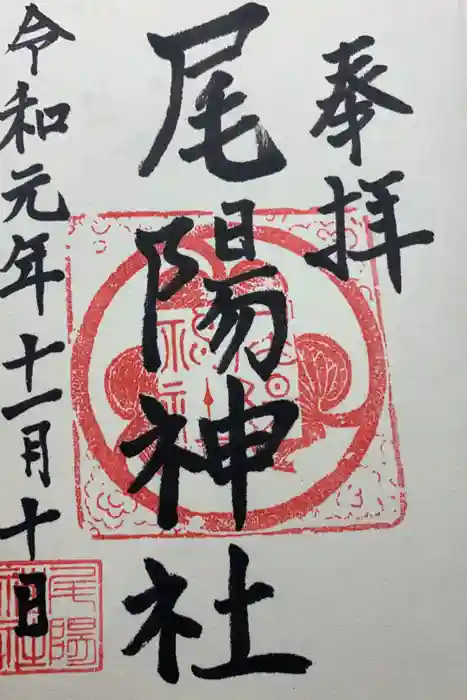 奉拝
尾陽神社
令和元年十一月十日
尾陽
神社